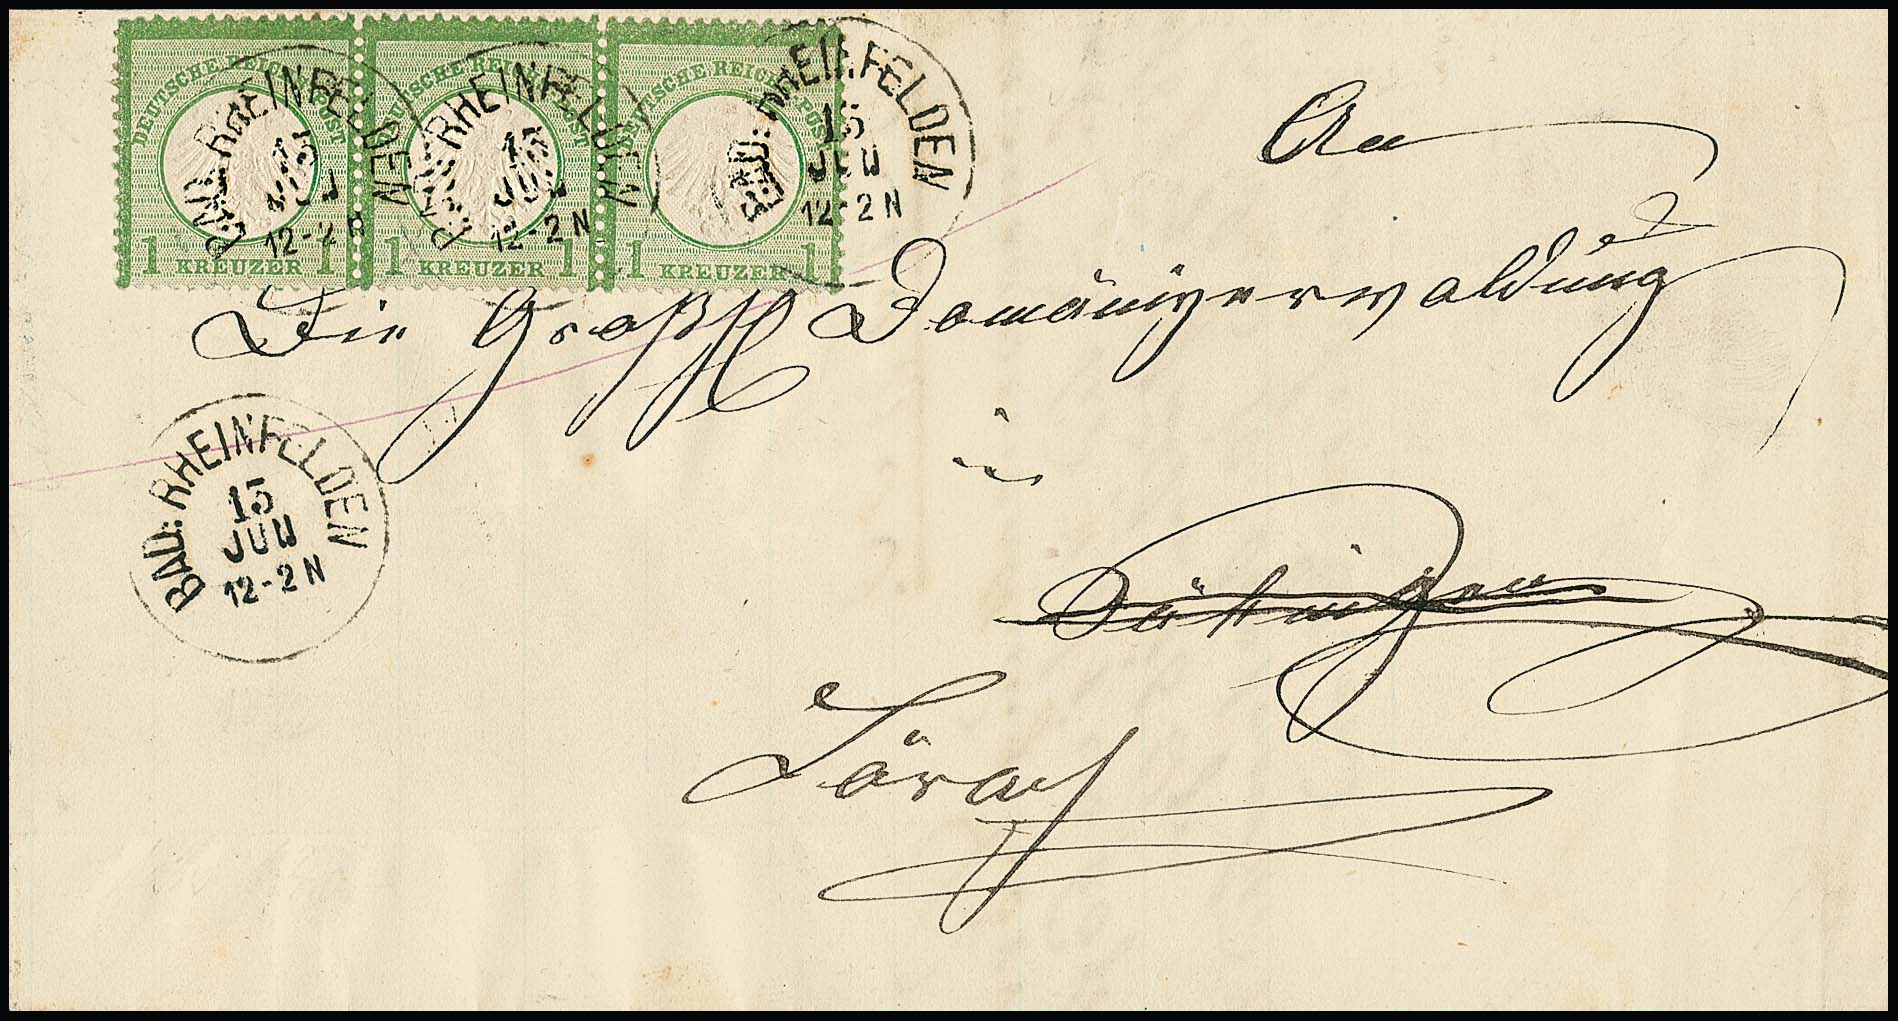 DEUTSCHE REICHS POST DEUTSCHE REICHS POST DEUTSCHE REICHS POST
1 KREUZER 1 1 KREUZER 1 1 KREUZER 1
BAD: RHEINFELDEN BAD: RHEINFELDEN BAD: RHEINFELDEN
15 15 15
JUN JUN JUN
12-2N 12-2N 12-2N
An
Die Großh Domänenverwaldung
in
BAD: RHEINFELDEN
15
JUN
12-2N
Lörach